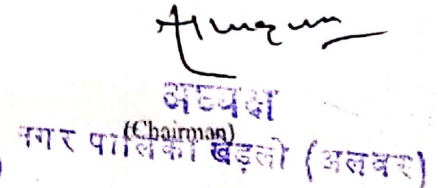 अध्यक्ष
(Chairman)
नगर पालिका खेड़ली (अलवर)